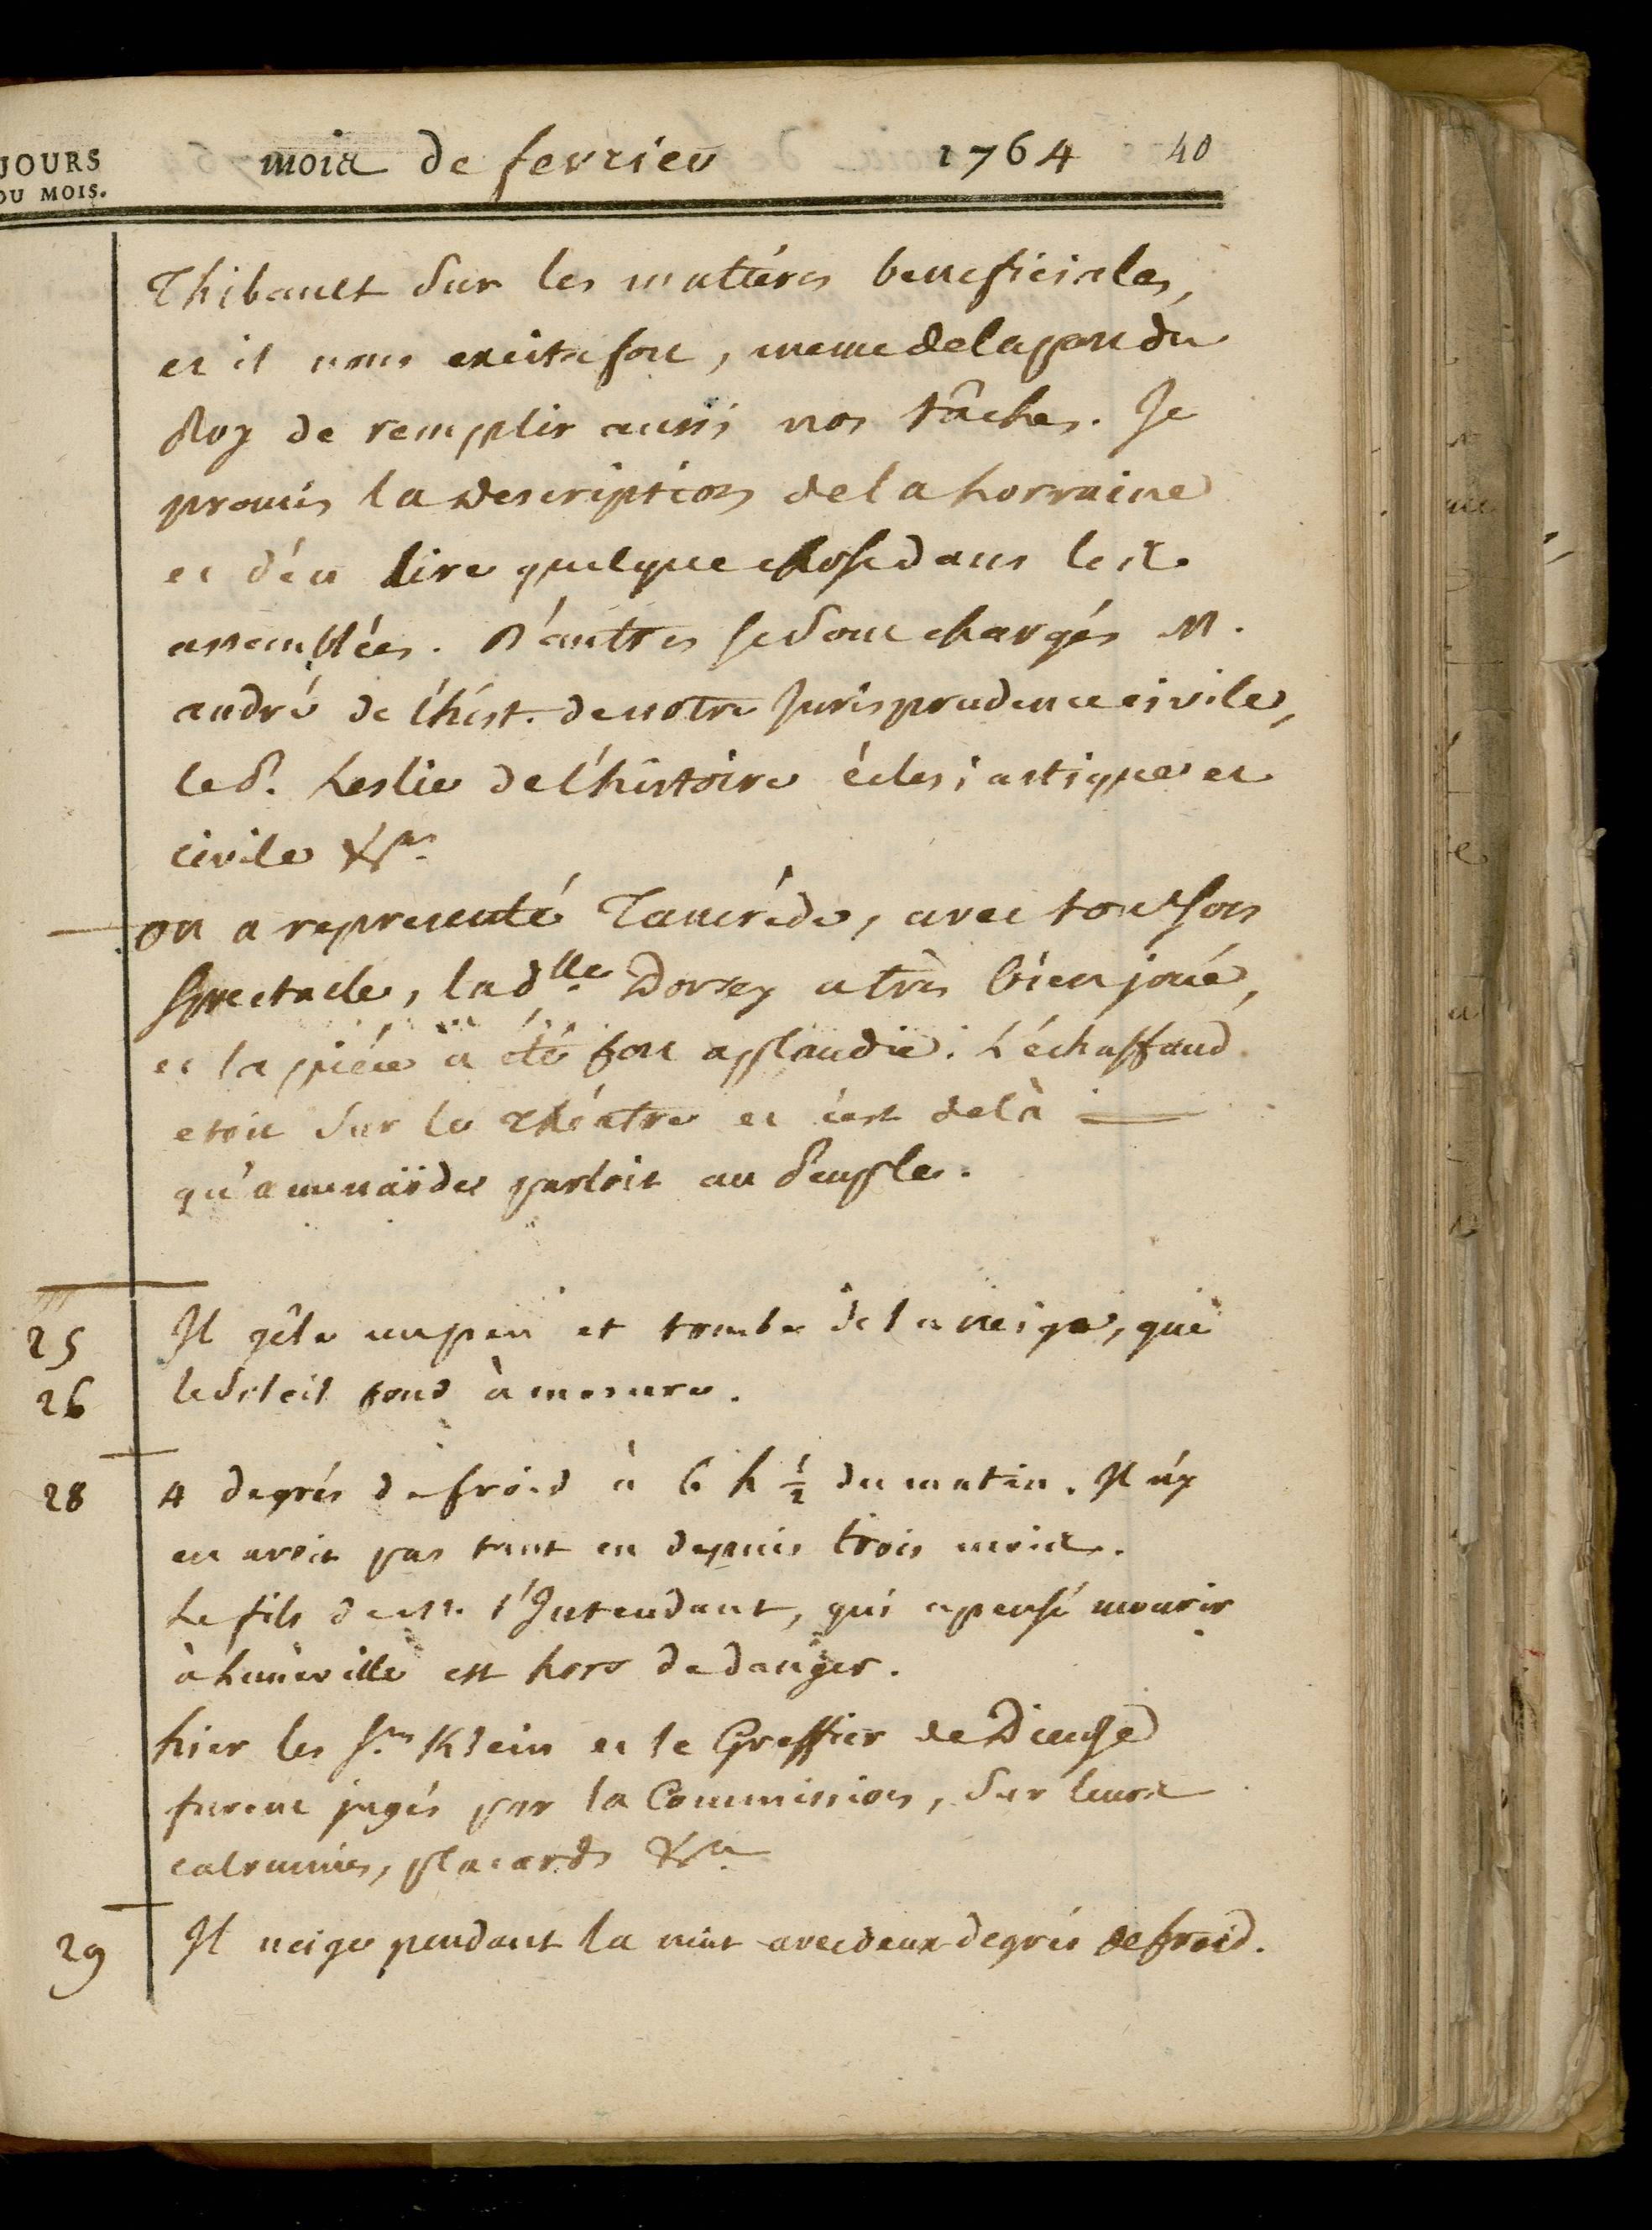 JOURS
DU MOIS.
mois de fevrier 1764 40
Thibault sur les matiéres beneficiales,
et il nous excita fort, meme de la part du
Roy de remplir aussi nos tâches. Je
promis la description de la Lorraine
et d'en lire quelque chose dans les
assemblées. D'autres se sont chargés M.
andré de l'hist. de notre Jurisprudence civile,
le P. Leslie de l'histoire éclesiastique et
civile &ca.
on a representé Tancréde, avec tout son
spectacle, la dlle Dorsey a très bien joué,
et la piéce a été fort applaudie. L'échaffaud
etoit sur le théatre et c'est delà
qu'amenaïde parloit au Peuple.
25 Il gêle un peu et tombe de la neige, que
26 le soleil fond à mesure.
28 4 degrés de froid à 6 h ½ du matin. Il n'y
en avoit pas tant eu depuis trois mois.
Le fils de M. l'Intendant, qui a pensé mourir
à Lunéville est hors de danger.
hier les Srs Klein et le Greffier de Dieuse
furent jugés par la Commission, sur leurs
calomnies, placards &ca
29 Il neige pendant la nuit avec deux degrés de froid.